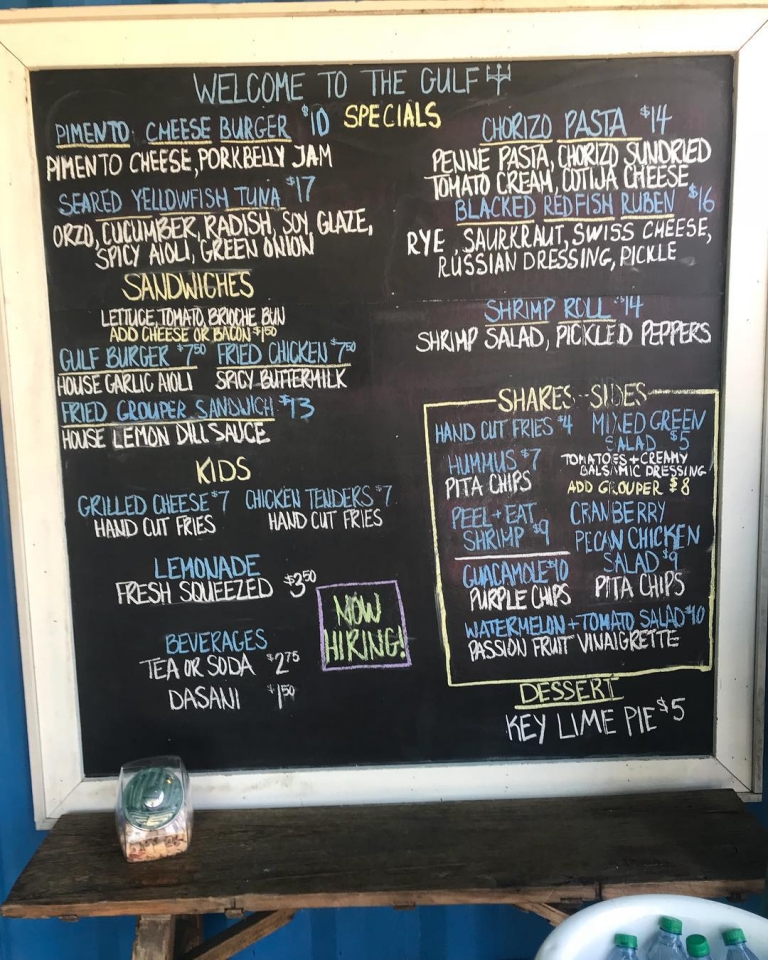 WELCOME TO THE GULF
SPECIALS
PIMENTO CHEESE BURGER $10
PIMENTO CHEESE, PORKBELLY JAM
SEARED YELLOWFISH TUNA $17
ORZO, CUCUMBER, RADISH, SOY, GLAZE,
SPICY AIOLI, GREEN ONION
CHORIZO PASTA $14
PENNE PASTA, CHORIZO, SUNDRIED
TOMATO CREAM, COTIJA CHEESE
BLACKED REDFISH RUBEN $16
RYE, SAURKRAUT, SWISS CHEESE,
RUSSIAN DRESSING, PICKLE
SHRIMP ROLL $14
SHRIMP SALAD, PICKLED PEPPERS
SANDWICHES
LETTUCE, TOMATO, BRIOCHE BUN
ADD CHEESE OR BACON $1.50
GULF BURGER $7.50 FRIED CHICKEN $7.50
HOUSE GARLIC AIOLI SPICY BUTTERMILK
FRIED GROUPER SANDWICH $13
HOUSE LEMON DILL SAUCE
KIDS
GRILLED CHEESE $7 CHICKEN TENDERS $7
HAND CUT FRIES HAND CUT FRIES
LEMONADE
FRESH SQUEEZED $3.50
BEVERAGES
TEA OR SODA $2.75
DASANI $1.50
NOW
HIRING!
SHARES - SIDES
HAND CUT FRIES $4
HUMMUS $7
PITA CHIPS
PEEL + EAT
SHRIMP $9
GUACAMOLE $10
PURPLE CHIPS
MIXED GREEN
SALAD $5
TOMATOES + CREAMY
BALSAMIC DRESSING
ADD GROUPER $8
CRANBERRY
PECAN CHICKEN
SALAD $9
PITA CHIPS
WATERMELON + TOMATO SALAD $10
PASSION FRUIT VINAIGRETTE
DESSERT
KEY LIME PIE $5